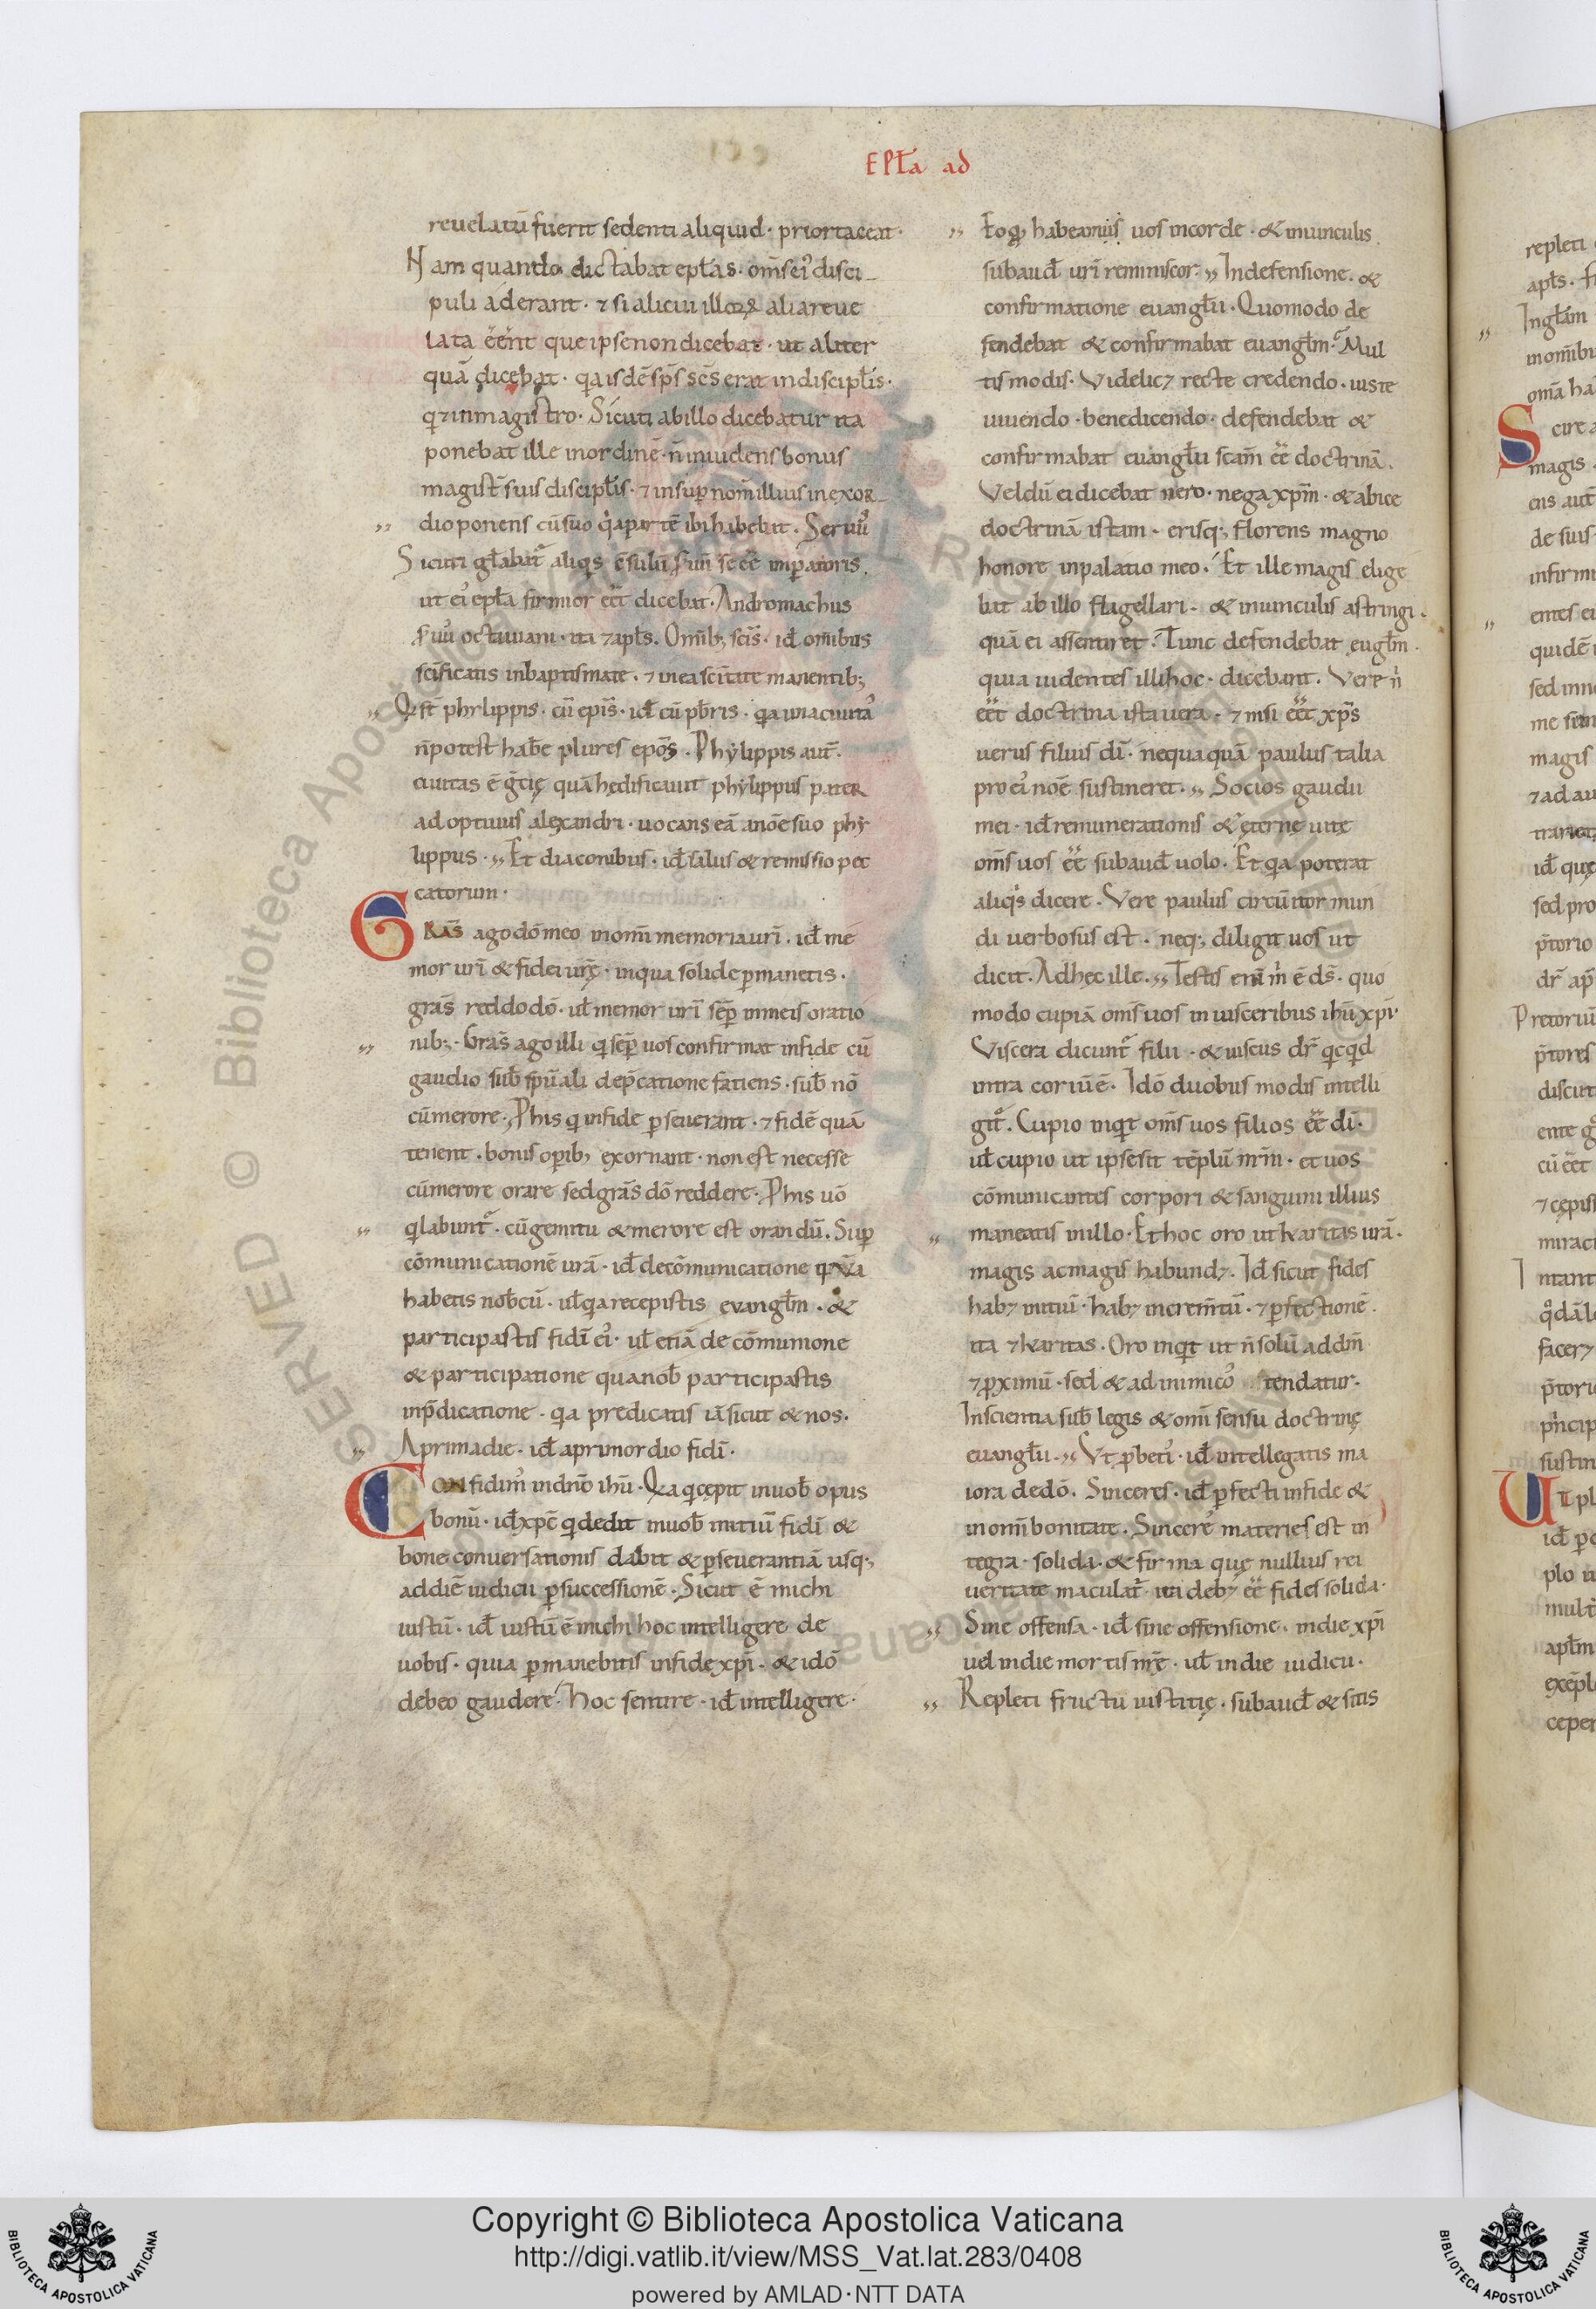 EPƚa ad
reuelatū fuerit sedenti aliquid · prior taceat ·
Nam quando dictabat epƚas · om̄s ei᾽ disci
puli aderant · ⁊ si alicui illoꝝ alia reue
lata eēnt que ipse non dicebat · ut aliter
quā dicebat · qa isdē sp̄s sc̄s erat in discipƚis ·
q ⁊ in magistro · Sicuti ab illo dicebatur ita
ponebat ille in ordinē · n̄ inuidens bonus
magist̄ suis discipƚis · ⁊ insup nom̄ illius in exor
dio ponens cū suo q apartē ibi habebat · Serui᾽
Sicuti gƚabat᷑ aliqs
ut ei᾽ epƚa firmior eēt dicebat · Andromachus
octauiani · ita ⁊ apƚs · Omib; sc̄is · id omibus
sc̄ificatis in baptismate · ⁊ in ea sc̄itate manentib;
Q st̄ phylippis · cū epis̄ · id cū pb̄ris · qa una ciuita᾽
n̄ potest hab̄e plures epōs · Phylippis aut̄
ciuitas ē ḡtię quā hędificauit phylippus pater
adoptiuus alexandri · uocans eā a nōe suo phy
lippus · Et diaconibus · id salus & remissio pec
catorum ·
GRAS̄ ago dō meo in om̄i memoria uri · id me
mor uri & fidei urę · in qua solide pmanetis ·
grās reddo dō · uƚ memor uri sēp in meis oratio
nib; · Grās ago illi q sēp uos confirmat in fide cū
gaudio sub sp̄uali dep̄catione fatiens · sub nō
cū merore · P his q in fide pseuerant · ⁊ fidē quā
tenent · bonis opib; exornant · non est necesse
cū merore orare sed grās dō reddere · P his uō
q labunt᷑ · cū gemitu & merore est orandū · Sup
cōmunicationē urā · id de cōmunicatione qa
habetis nob̄cū · uƚ qa recepistis evangƚm · &
participastis fidī ei᾽ · uƚ etiā de cōmunione
& participatione qua nob̄ participastis
in p̄dicatione · qa predicatis iā sicut & nos ·
A prima die · id a primordio fidī ·
CONfidim᾽ in dn̄o ihū · Qa q cępit in uob̄ opus
bonū · id xp̄c q dedit in uob̄ initiū fidī &
bone conuersationis dabit & pseuerantiā usq;
ad diē iudicii p successionē · Sicut ē michi
iustū · id iustū ē michi hoc intelligere de
uobis · quia pmanebitis in fide xp̄i · & idō
debeo gaudere · Hoc sentire · id intelligere ·
Eo qđ habeamus uos in corde · & in uinculis
subaud uri reminiscor · In defensione · &
confirmatione euangƚii · Quomodo de
fendebat & confirmabat euangƚm · Mul
tis modis · Videlicꝫ recte credendo · iuste
uiuendo · benedicendo · defendebat &
confirmabat euangƚii sc̄am eē doctrinā ·
Vel dū ei dicebat nero · nega xp̄m · & abice
doctrinā istam · erisq; florens magno
honore in palatio meo · Et ille magis elige
bat ab illo flagellari · & in uinculis astringi ·
quā ei assentiret · Tunc defendebat eugƚm ·
quia uidentes illi hoc · dicebant · Vere n̄
eēt doctrina ista uera · ⁊ nisi eēt xp̄s
uerus filius dī · nequaquā paulus talia
pro ei᾽ nōe sustineret · Socios gaudii
mei · id remunerationis & ęternę uitę
om̄s uos eē subaud uolo · Et qa poterat
aliqs dicere · Vere paulus circūitor mun
di uerbosus est · neq; diligit uos ut
dicit · Ad hęc ille · Testis eni m ē ds̄ · quo
modo cupiā om̄s uos in uisceribus ihū xp̄i ·
Viscera dicunt᷑ filii · & uiscus dr̄ qcqd
intra coriū ē · Idō duobus modis intelli
git᷑ · Cupio inqt om̄s uos filios eē dī ·
uƚ cupio ut ipse sit tēplū nrm · et uos
cōmunicantes corpori & sanguini illius
maneatis in illo · Et hoc oro ut karitas urā ·
magis ac magis habundꝫ · Id sicut fides
habꝫ initiū · habꝫ increm̄tū · ⁊ pfectionē ·
ita ⁊ karitas · Oro inqt ut n̄ solū ad dm̄
⁊ pximū · sed & ad inimico᾽ tendatur ·
In scientia sub legis & om̄i sensu doctrinę
euangƚii · Vt pbeti᾽ · id intellegatis ma
iora de dō · Sinceres · id pfecti in fide &
in om̄i bonitate · Sincere᾽ materies est in
tegra · solida · & firma quę nullius rei
ueritate maculat᷑ · ita debꝫ eē fides solida ·
Sine offensa · id sine offensione · in die xp̄i
uel in die mortis mę · uƚ in die iudicii ·
Repleti fructu iustitię · subaud & sitis
repleti
apƚs ·
In gƚam
in omibu
omā ha
Scire
magis
ens aut
de suis
infirmi
entes ei
quidē
sed inno
me
magis
⁊ ad au
id quę
sed pro
p̄torio
dr̄ ap
Pretoriū
p̄tores
discut
ente
cū eēt
⁊ cepist
miraci
facerꝫ
p̄torio
p̄ncip
sustin
Ut pl
id
plo
mult
apƚm
exēpl
ceper
SERVED © Biblioteca Apostolica Vaticana ALL RIGHTS RESERVED
Copyright © Biblioteca Apostolica Vaticana
http://digi.vatlib.it/view/MSS_Vat.lat.283/0408
powered by AMLAD·NTT DATA
BIBLIOTECA APOSTOLICA VATICANA
BIBLIOTECA APOSTOLICA VATICANA